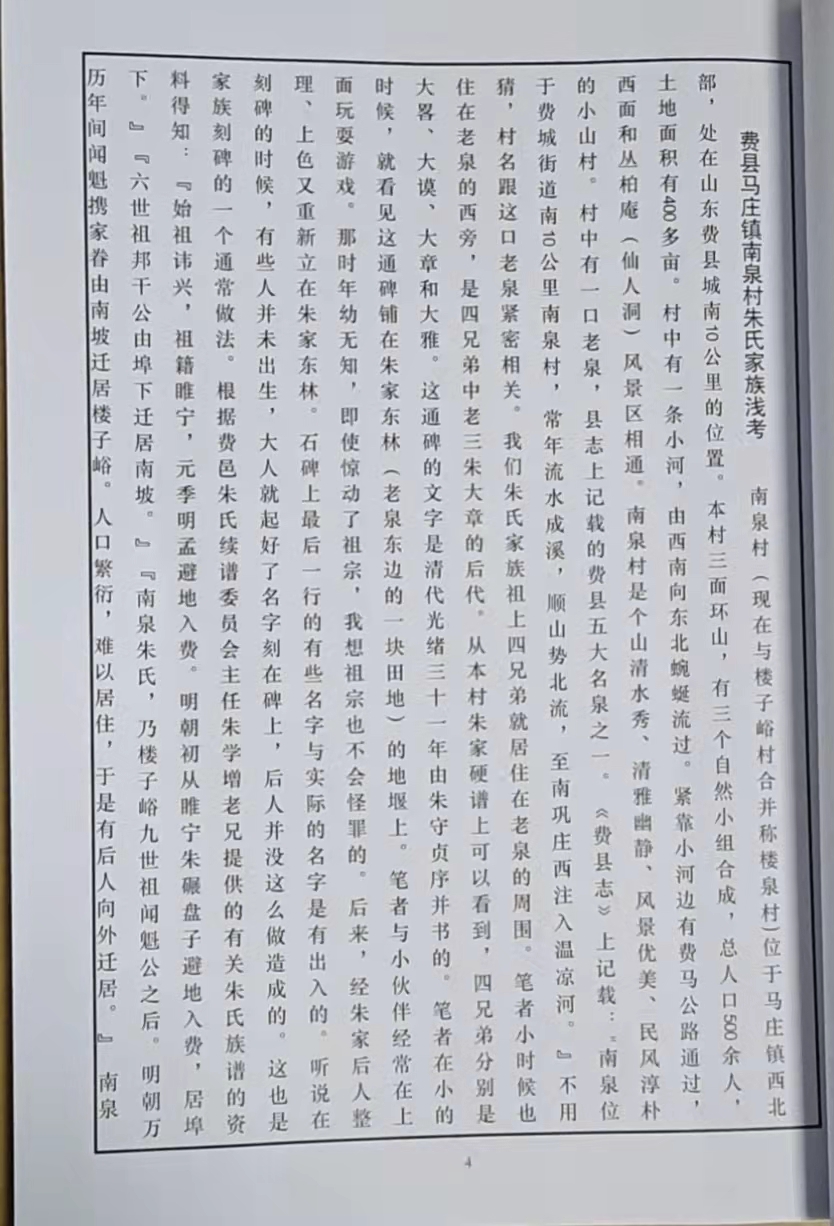 费县马庄镇南泉村朱氏家族浅考
南泉村（现在与楼子峪村合并称楼泉村）位于马庄镇西北
部，处在山东费县城南10公里的位置。本村三面环山，有三个自然小组合成，总人口500余人，
土地面积有400多亩。村中有一条小河，由西南向东北蜿蜒流过。紧靠小河边有费马公路通过，
西面和丛柏庵（仙人洞）风景区相通。南泉村是个山清水秀、清雅幽静、风景优美、民风淳朴
的小山村。村中有一口老泉，县志上记载的费县五大名泉之一。《费县志》上记载：“南泉位
于费城街道南10公里南泉村，常年流水成溪，顺山势北流，至南巩庄西注入温凉河。』不用
猜，村名跟这口老泉紧密相关。我们朱氏家族祖上四兄弟就居住在老泉的周围。笔者小时候也
住在老泉的西旁，是四兄弟中老三朱大章的后代。从本村朱家硬谱上可以看到，四兄弟分别是
大畧、大谟、大章和大雅。这通碑的文字是清代光绪三十一年由朱守贞序并书的。笔者在小的
时候，就看见这通碑铺在朱家东林（老泉东边的一块田地）的地堰上。笔者与小伙伴经常在上
面玩耍游戏。那时年幼无知，即使惊动了祖宗，我想祖宗也不会怪罪的。后来，经朱家后人整
理、上色又重新立在朱家东林。石碑上最后一行的有些名字与实际的名字是有出入的。听说在
刻碑的时候，有些人并未出生，大人就起好了名字刻在碑上，后人并没这么做造成的。这也是
家族刻碑的一个通常做法。根据费邑朱氏续谱委员会主任朱学增老兄提供的有关朱氏族谱的资
料得知：『始祖讳兴，祖籍睢宁，元季明孟避地入费。明朝初从睢宁朱碾盘子避地入费，居埠
下。』『六世祖邦干公由埠下迁居南坡。』『南泉朱氏，乃楼子峪九世祖闻魁公之后。明朝万
历年间闻魁携家眷由南坡迁居楼子峪。人口繁衍，难以居住，于是有后人向外迁居。』南泉
4